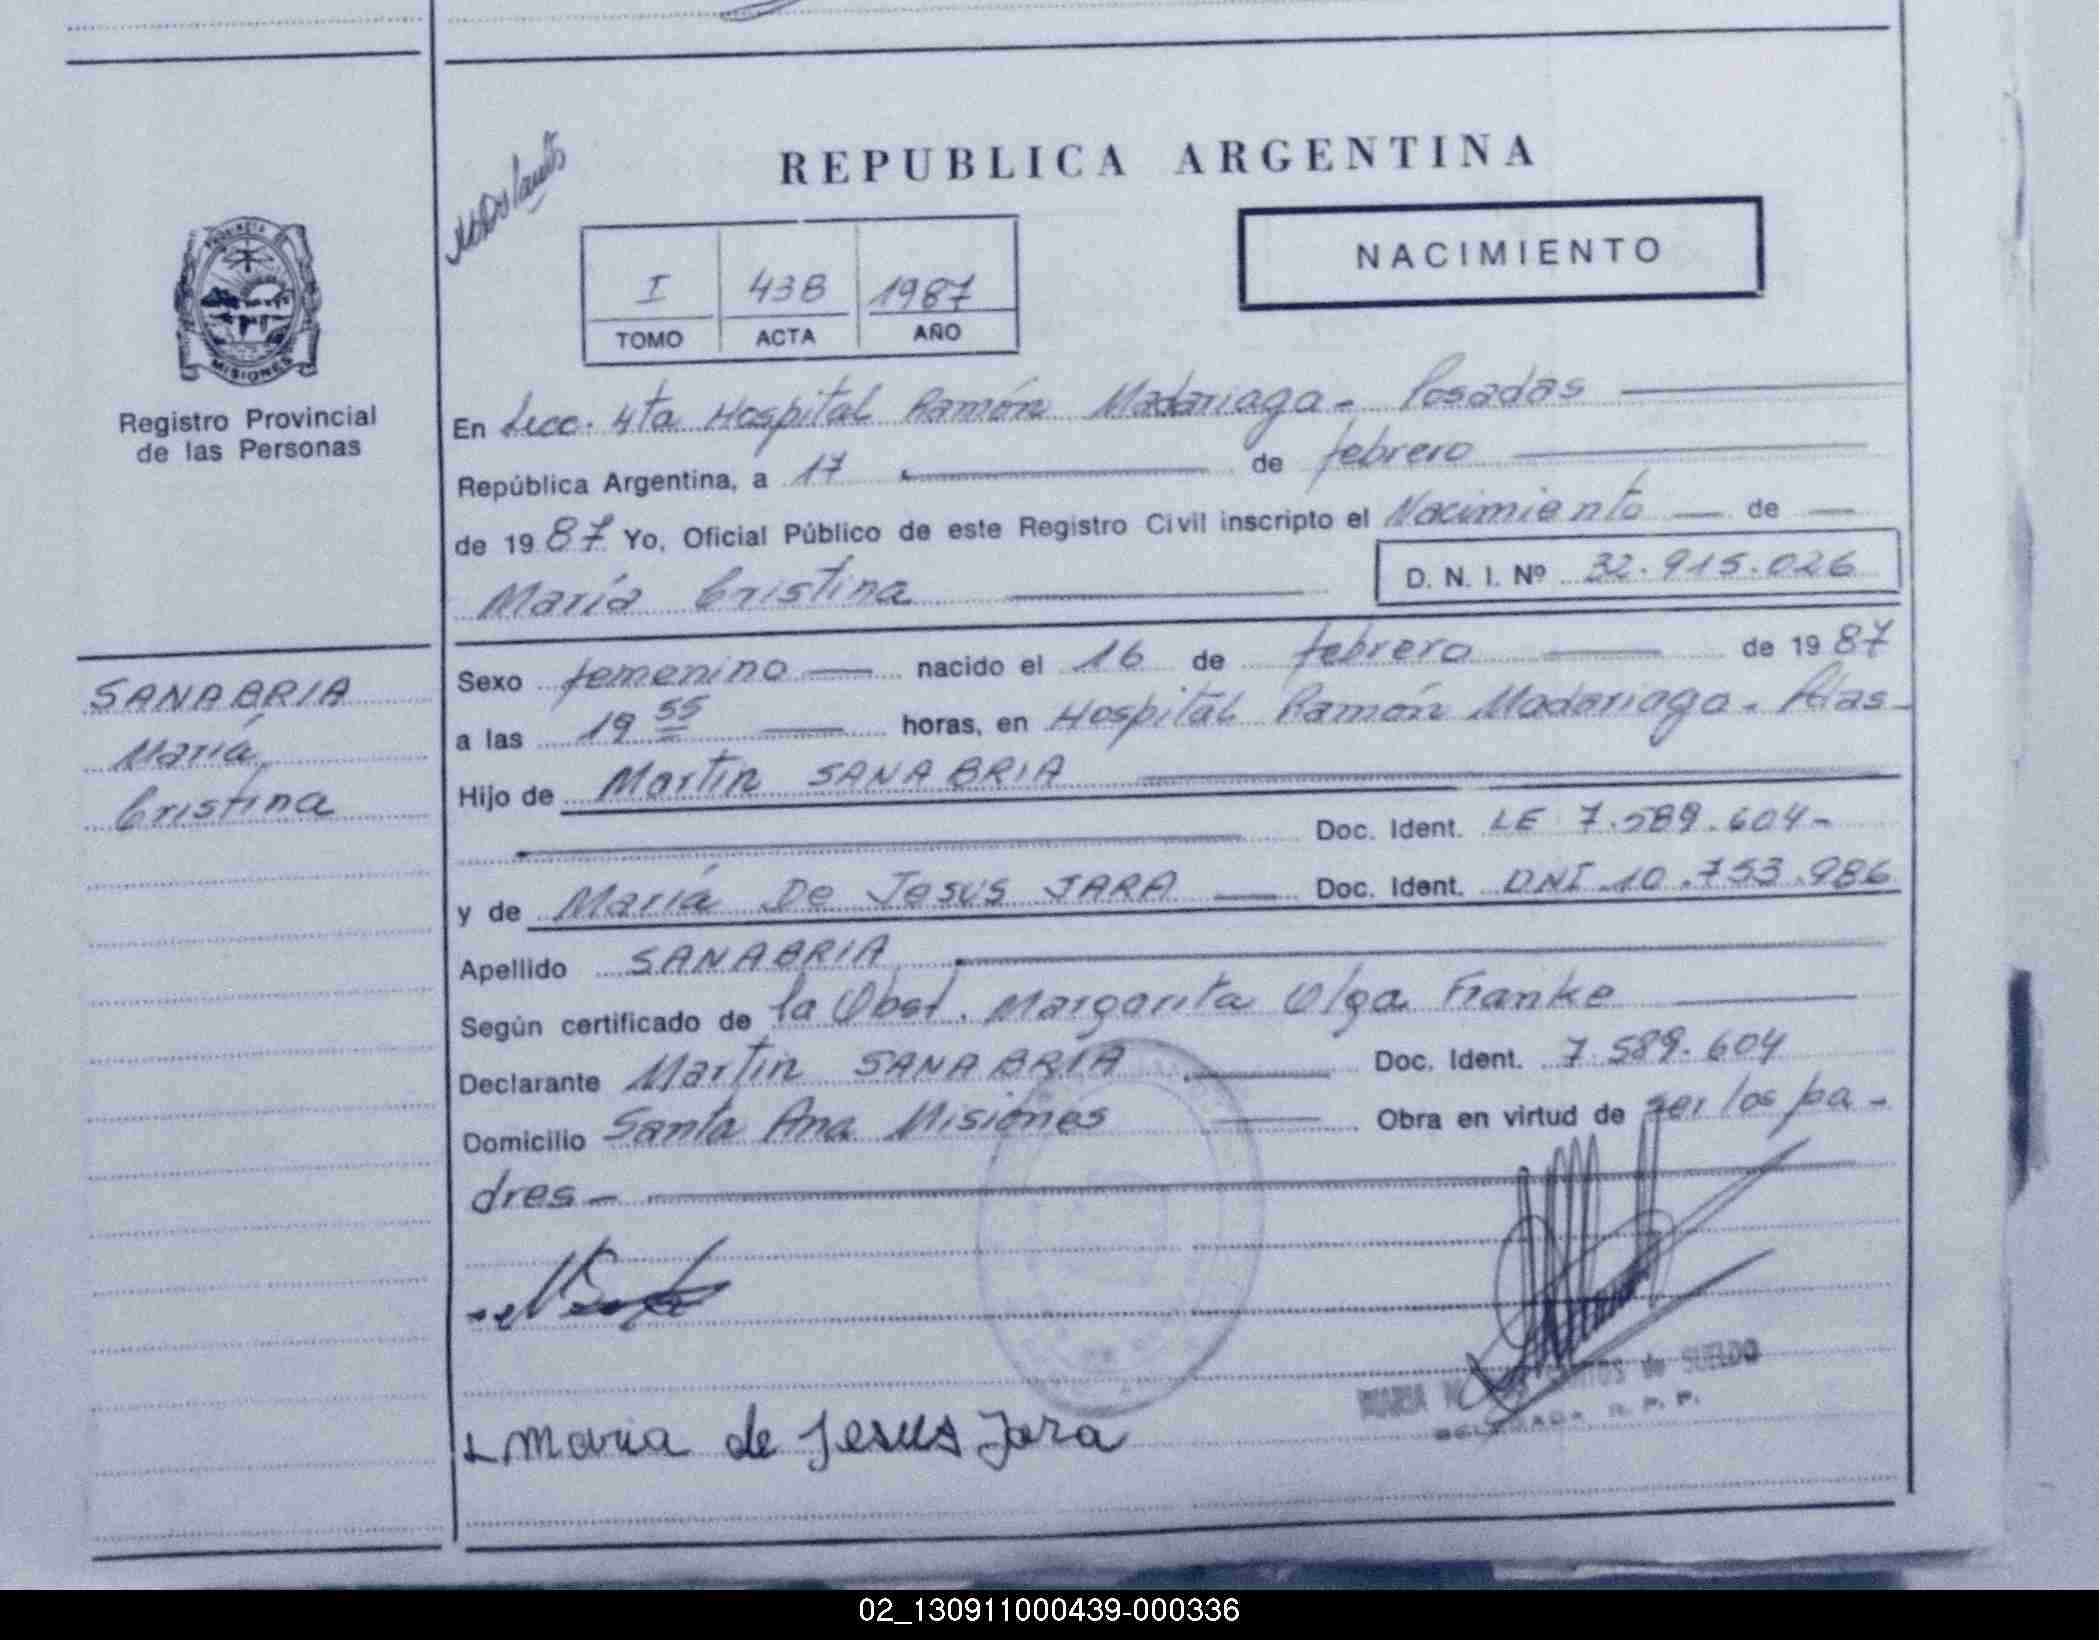 REPUBLICA ARGENTINA
NACIMIENTO
I 438 1987
TOMO ACTA AÑO
PROVINCIA DE
MISIONES
Registro Provincial
de las Personas
SANABRIA
María
Cristina
En Secc. 4ta Hospital Ramón Madariaga - Posadas
República Argentina, a 17 de febrero
de 1987 Yo, Oficial Público de este Registro Civil inscripto el Nacimiento de
María Cristina D. N. I. Nº 32.915.026
Sexo femenino nacido el 16 de febrero de 1987
a las 19 55 horas, en Hospital Ramón Madariaga - Pdas -
Hijo de Martin SANABRIA
Doc. Ident. LE 7.589.604-
y de María De Jesus JARA Doc. Ident. DNI 10.753.986
Apellido SANABRIA
Según certificado de la Obst. Margarita Olga Franke
Declarante Martin SANABRIA Doc. Ident. 7.589.604
Domicilio Santa Ana Misiones Obra en virtud de ser los pa-
dres -
MARIA de SUELDO
DELEGADA R. P. P.
Maria de Jesus Jara
02_130911000439-000336